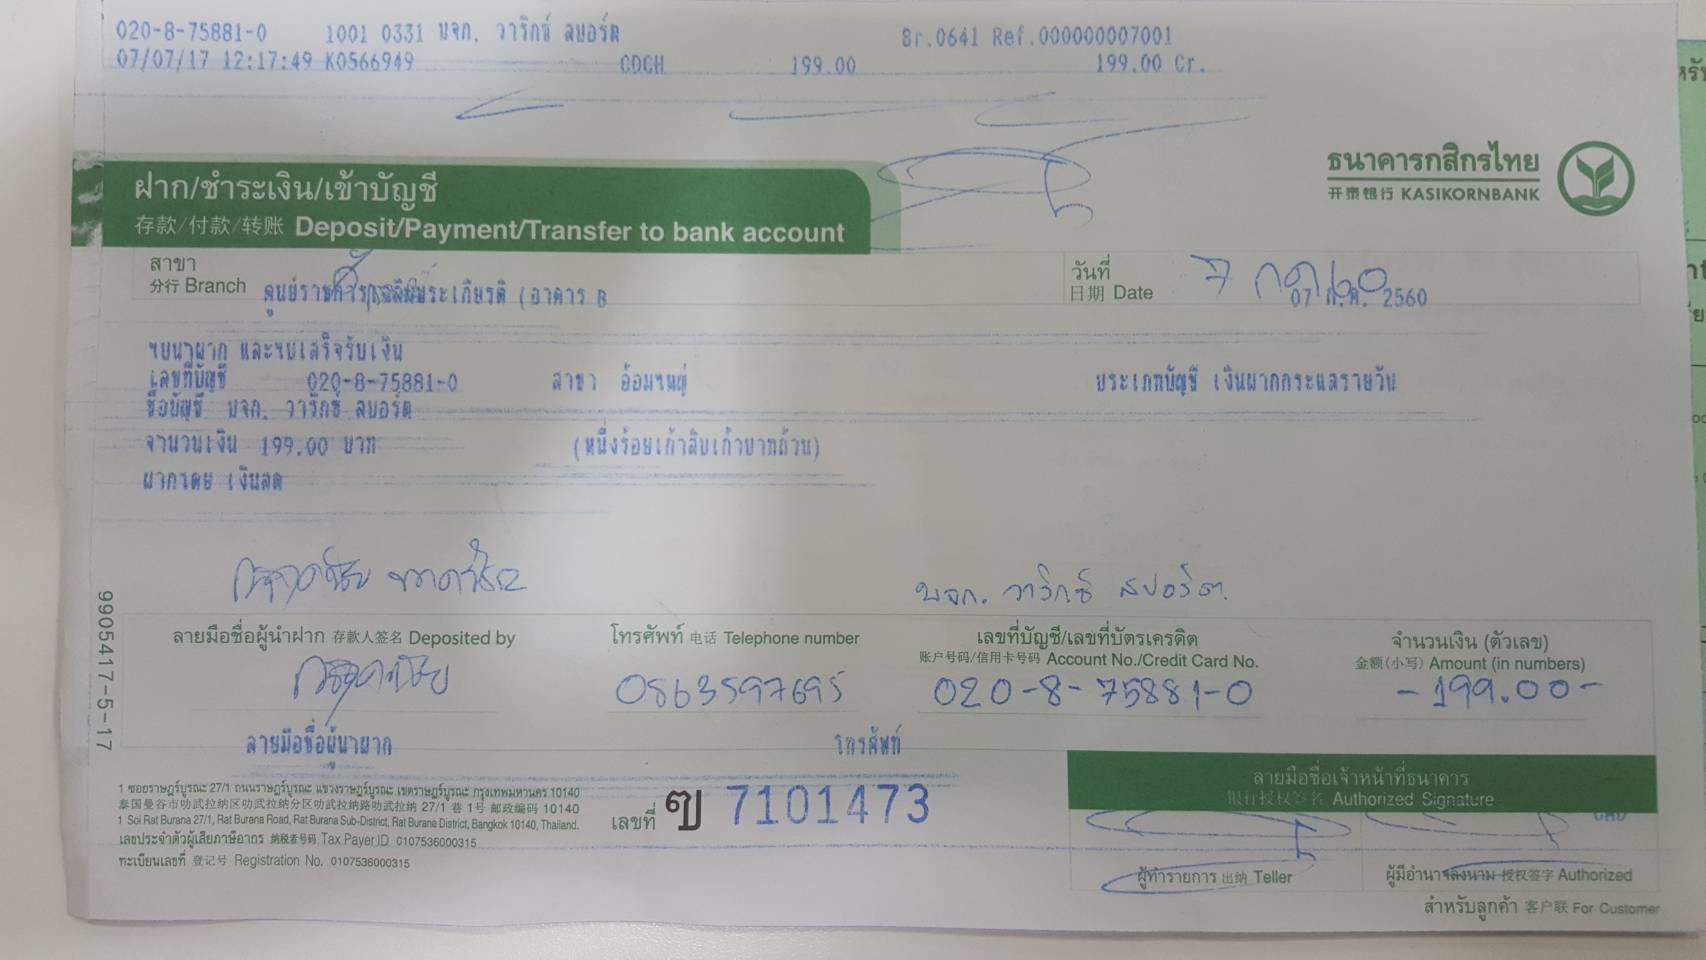 020-8-75881-0 1001 0331 บจก. วาริกซ์ สปอร์ต Br.0641 Ref.000000007001
07/07/17 12:17:49 K0566949 CDCH 199.00 199.00 Cr.
ธนาคารกสิกรไทย
开泰银行 KASIKORNBANK
ฝาก/ชำระเงิน/เข้าบัญชี
存款/付款/转账 Deposit/Payment/Transfer to bank account
สาขา
分行 Branch
ศูนย์ราชการเฉลิมพระเกียรติ (อาคาร B
วันที่
日期 Date
7 กค 60
07 ก.ค. 2560
ใบนำฝาก และใบเสร็จรับเงิน
เลขที่บัญชี 020-8-75881-0 สาขา อ้อมใหญ่ ประเภทบัญชี เงินฝากกระแสรายวัน
ชื่อบัญชี บจก. วาริกซ์ สปอร์ต
จำนวนเงิน 199.00 บาท (หนึ่งร้อยเก้าสิบเก้าบาทถ้วน)
ฝากโดย เงินสด
บจก. วาริกซ์ สปอร์ต
ลายมือชื่อผู้นำฝาก 存款人签名 Deposited by
โทรศัพท์ 电话 Telephone number
เลขที่บัญชี/เลขที่บัตรเครดิต
账户号码/信用卡号码 Account No./Credit Card No.
จำนวนเงิน (ตัวเลข)
金额(小写) Amount (in numbers)
0863597695 020-8-75881-0 -199.00-
ลายมือชื่อผู้นำฝาก โทรศัพท์
9905417-5-17
1 ซอยราษฎร์บูรณะ 27/1 ถนนราษฎร์บูรณะ แขวงราษฎร์บูรณะ เขตราษฎร์บูรณะ กรุงเทพมหานคร 10140
泰国曼谷市叻武拉纳区叻武拉纳分区叻武拉纳路叻武拉纳 27/1 巷 1号 邮政编码 10140
1 Soi Rat Burana 27/1, Rat Burana Road, Rat Burana Sub-District, Rat Burana District, Bangkok 10140, Thailand.
เลขประจำตัวผู้เสียภาษีอากร 纳税者号码 Tax Payer ID 0107536000315
ทะเบียนเลขที่ 登记号 Registration No. 0107536000315
เลขที่ ฃ 7101473
ลายมือชื่อเจ้าหน้าที่ธนาคาร
银行授权签名 Authorized Signature
ผู้ทำรายการ 出纳 Teller
ผู้มีอำนาจลงนาม 授权签字 Authorized
สำหรับลูกค้า 客户联 For Customer